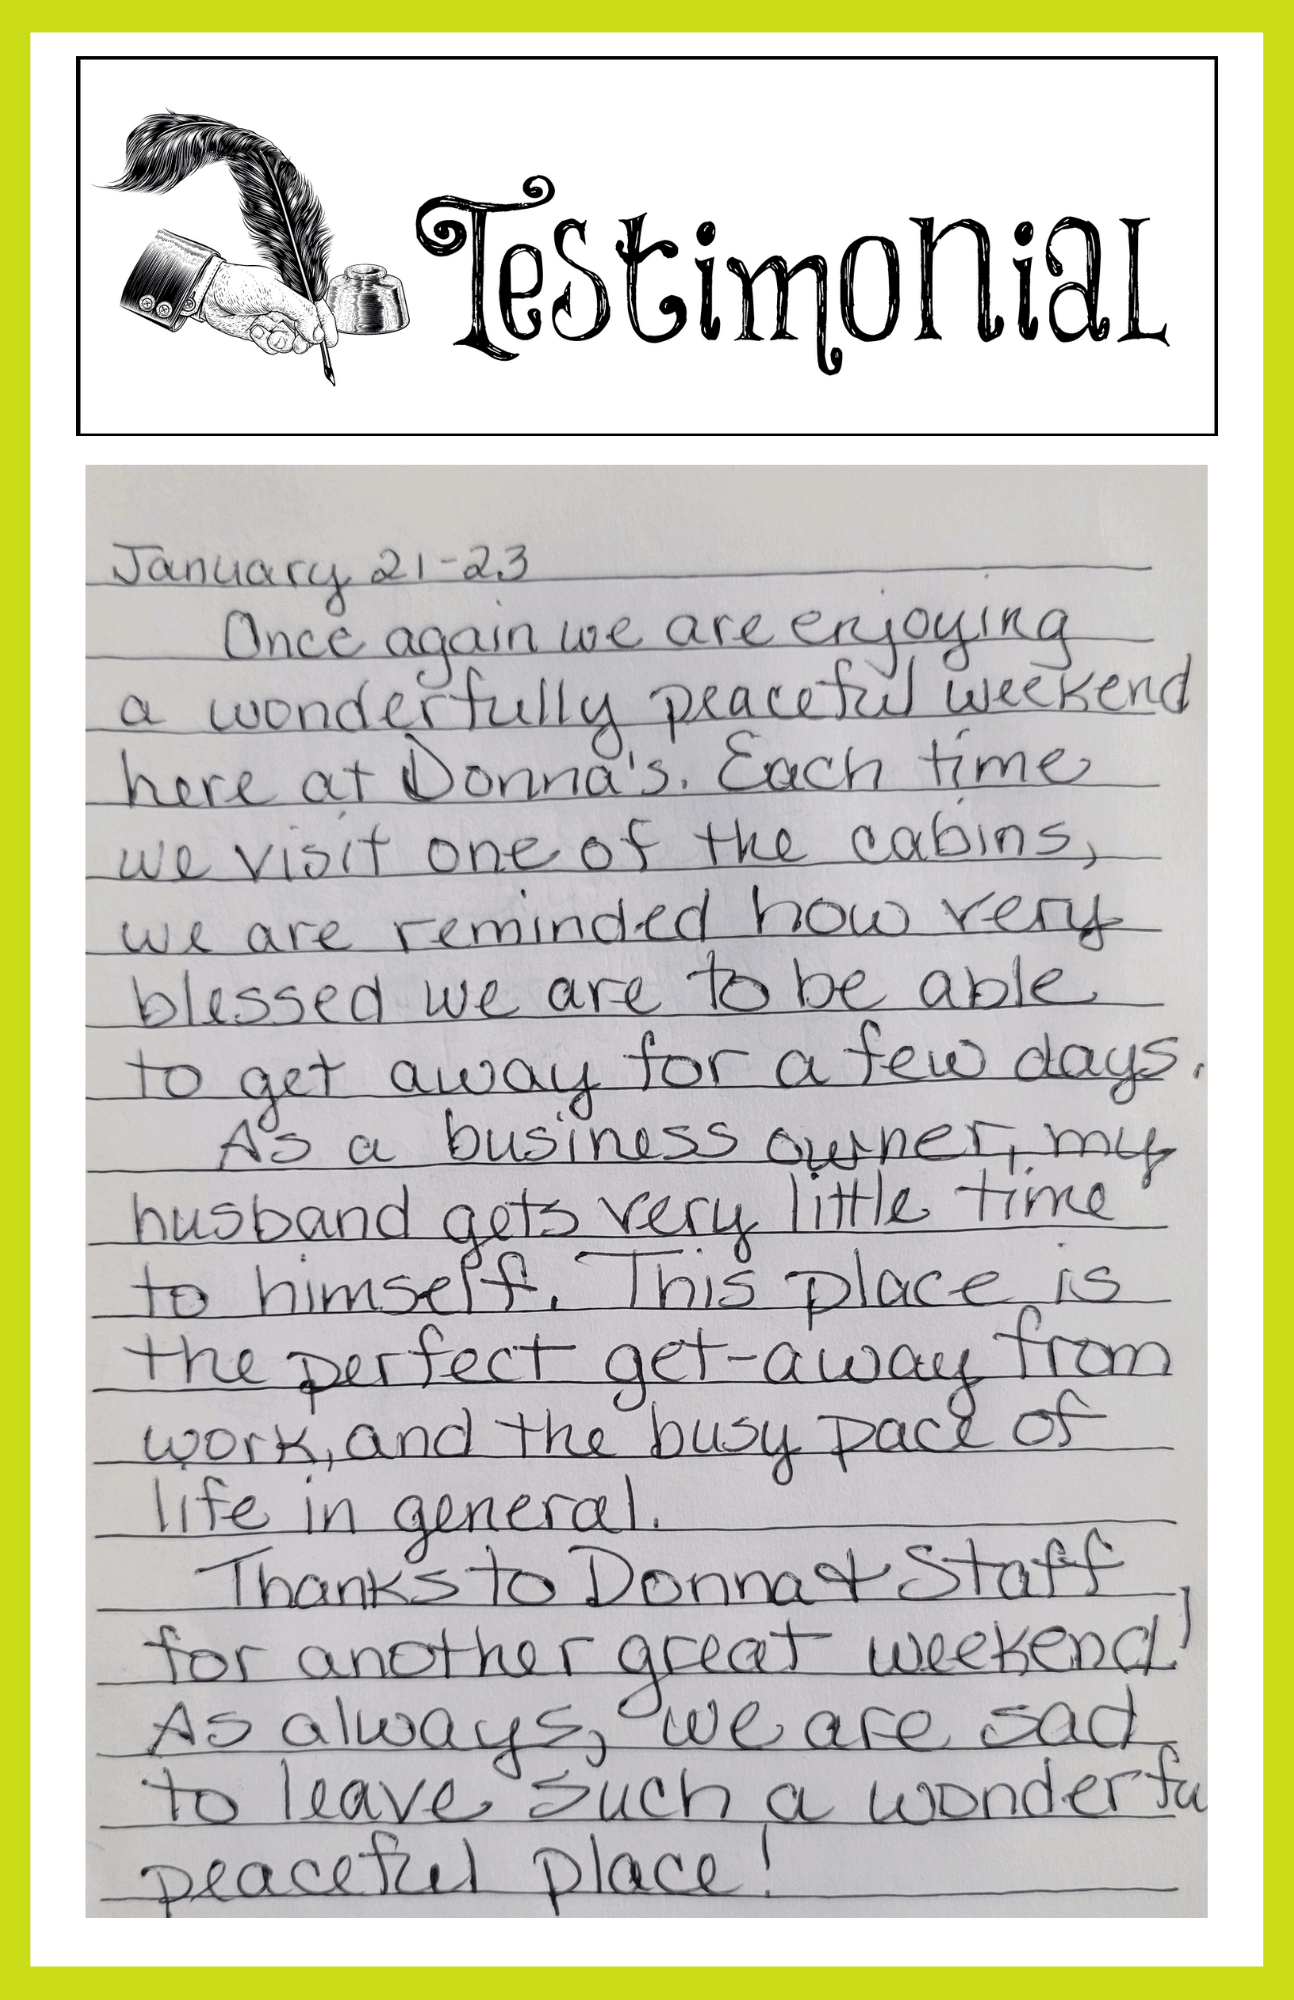 Testimonial
January 21-23
Once again we are enjoying
a wonderfully peaceful weekend
here at Donna's. Each time
we visit one of the cabins,
we are reminded how very
blessed we are to be able
to get away for a few days.
As a business owner, my
husband gets very little time
to himself. This place is
the perfect get-away from
work, and the busy pace of
life in general.
Thanks to Donna & Staff
for another great weekend!
As always, we are sad
to leave such a wonderfu
peaceful place!